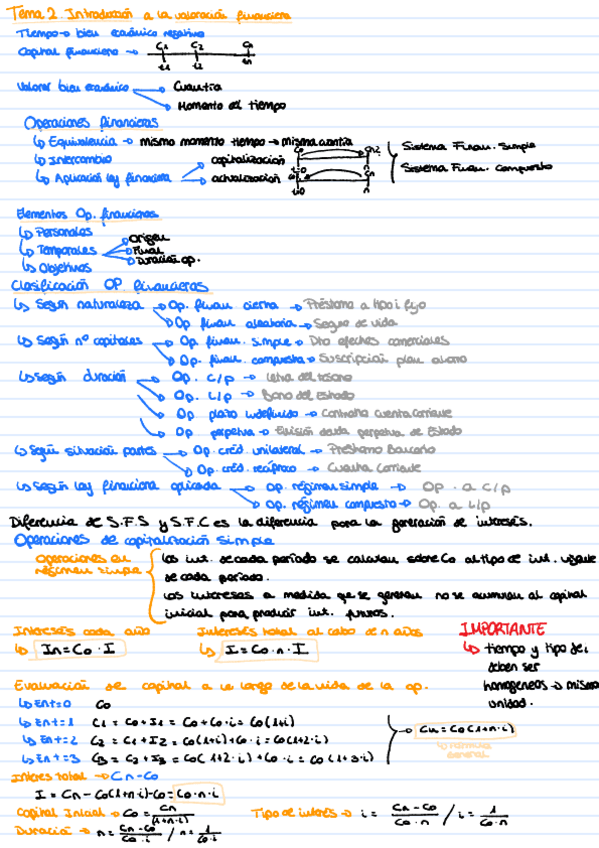 Tema 2. Introducción a la valoración financiera
Tiempo → bien económico negativo
Capital financiero → C1 C2 Cn
t1 t2 tn
Valorar bien económico → Cuantía
→ Momento del tiempo
Operaciones financieras
↳ Equivalencia → mismo momento tiempo → misma cuantía
↳ Intercambio → capitalización
↳ Aplicación ley financiera → actualización
Co Cn
t=0 n
Co Cn
t=0 n
Sistema Finan. Simple
Sistema Finan. compuesto
Elementos Op. financieras
↳ Personales
↳ Temporales → Origen
→ Final
→ Duración op.
↳ Objetivos
Clasificación OP. financieras
↳ Según naturaleza → Op. finan cierta → Préstamo a tipo i fijo
→ Op finan aleatoria → Seguro de vida
↳ Según nº capitales → Op finan. simple → Dto efectos comerciales
→ Op. finan. compuesta → Suscripción plan ahorro
↳ Según duración → Op. C/p → Letra del tesoro
→ Op. L/p → Bono del Estado
→ Op plazo indefinido → Contrato cuenta corriente
→ Op perpetua → Emisión deuda perpetua de Estado
↳ Según situación partes → Op. créd. unilateral → Préstamo Bancario
→ Op. créd. recíproco → Cuenta corriente
↳ Según ley financiera aplicada → Op. régimen simple → Op. a C/p
→ Op. régimen compuesto → Op. a L/p
Diferencia de S.F.S y S.F.C es la diferencia para la generación de intereses.
Operaciones de capitalización simple
Operaciones en régimen simple
Los int. de cada período se calculan sobre Co al tipo de int. vigente
de cada período.
Los intereses a medida que se generan no se acumulan al capital
inicial para producir int. futuros.
Intereses cada año
↳ In = Co · I
Intereses total al cabo de n años
↳ I = Co · n · I
IMPORTANTE
↳ tiempo y tipo de i
deben ser
homogéneos → misma
unidad.
Evaluación de capital a lo largo de la vida de la op.
↳ En t=0 Co
↳ En t=1 C1 = Co + I1 = Co + Co · i = Co(1+i)
↳ En t=2 C2 = C1 + I2 = Co(1+i) + Co · i = Co(1+2·i)
↳ En t=3 C3 = C2 + I3 = Co(1+2·i) + Co · i = Co(1+3·i)
→ Cn = Co(1+n·i)
↳ Fórmula
General
Interes total → Cn-Co
I = Cn - Co(1+n·i)-Co = Co·n·i
Capital Inicial → Co = Cn/(1+n·i)
Tipo de interés → i = Cn - Co/Co·n / i = 1/Co·n
Duración → n = Cn-Co/Co·i / n = 1/Co·i